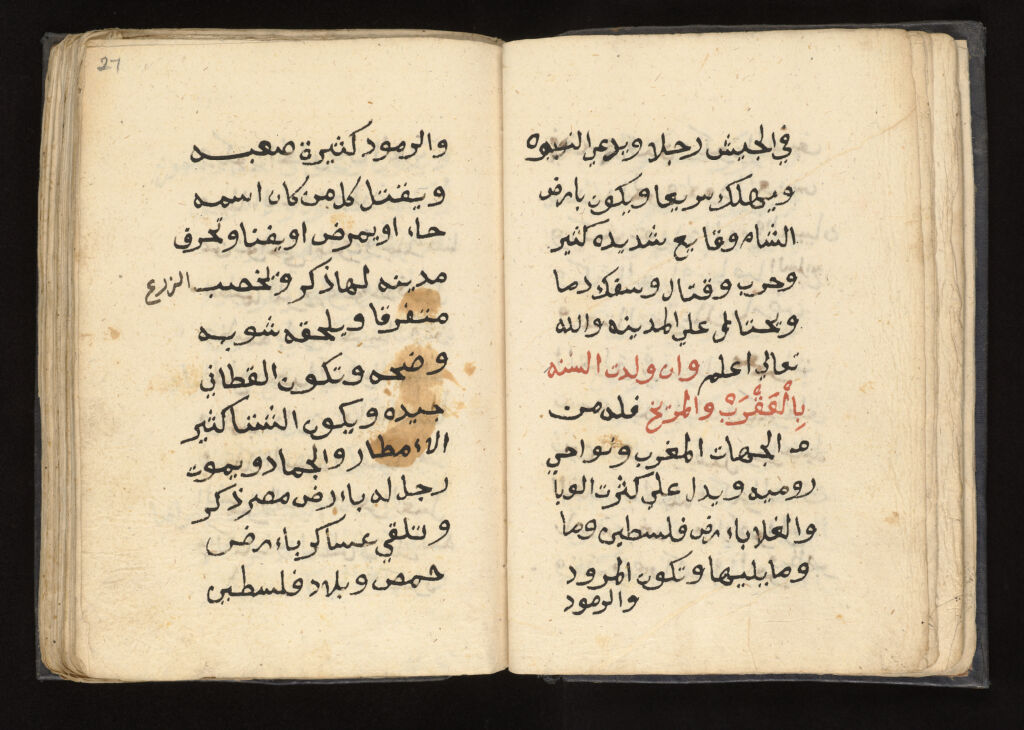 في الجيش رجلا ويدعي النبوه
ويهلك سريعا ويكون بارض
الشام وقايع شديده كثير
وحرب وقتال وسفك دما
ويحتا علي المدينه والله
تعالي اعلم وان ولدت السنه
بِالْعَقْرَبْ والمريخ فله من
الجهات المغرب ونواحي
روميه ويدل علي كثرت الوبا
والغلا باءرض فلسطين وما
وما يليها وتكون المرود
والرمود
27
والرمود كثيرة صعبه
ويقتل كل من كان اسمه
حاء او يمرض او يفنا وتحرق
مدينه لها ذكر وتخصب الزرع
متفرقا ويلحقه شوبه
وضحه وتكون القطاني
جيده ويكون الشتا كثير
الاءمطار والجماد ويموت
رجل له باءرض مصر ذكر
وتلقي عساكر باءرض
حمص وبلاد فلسطين